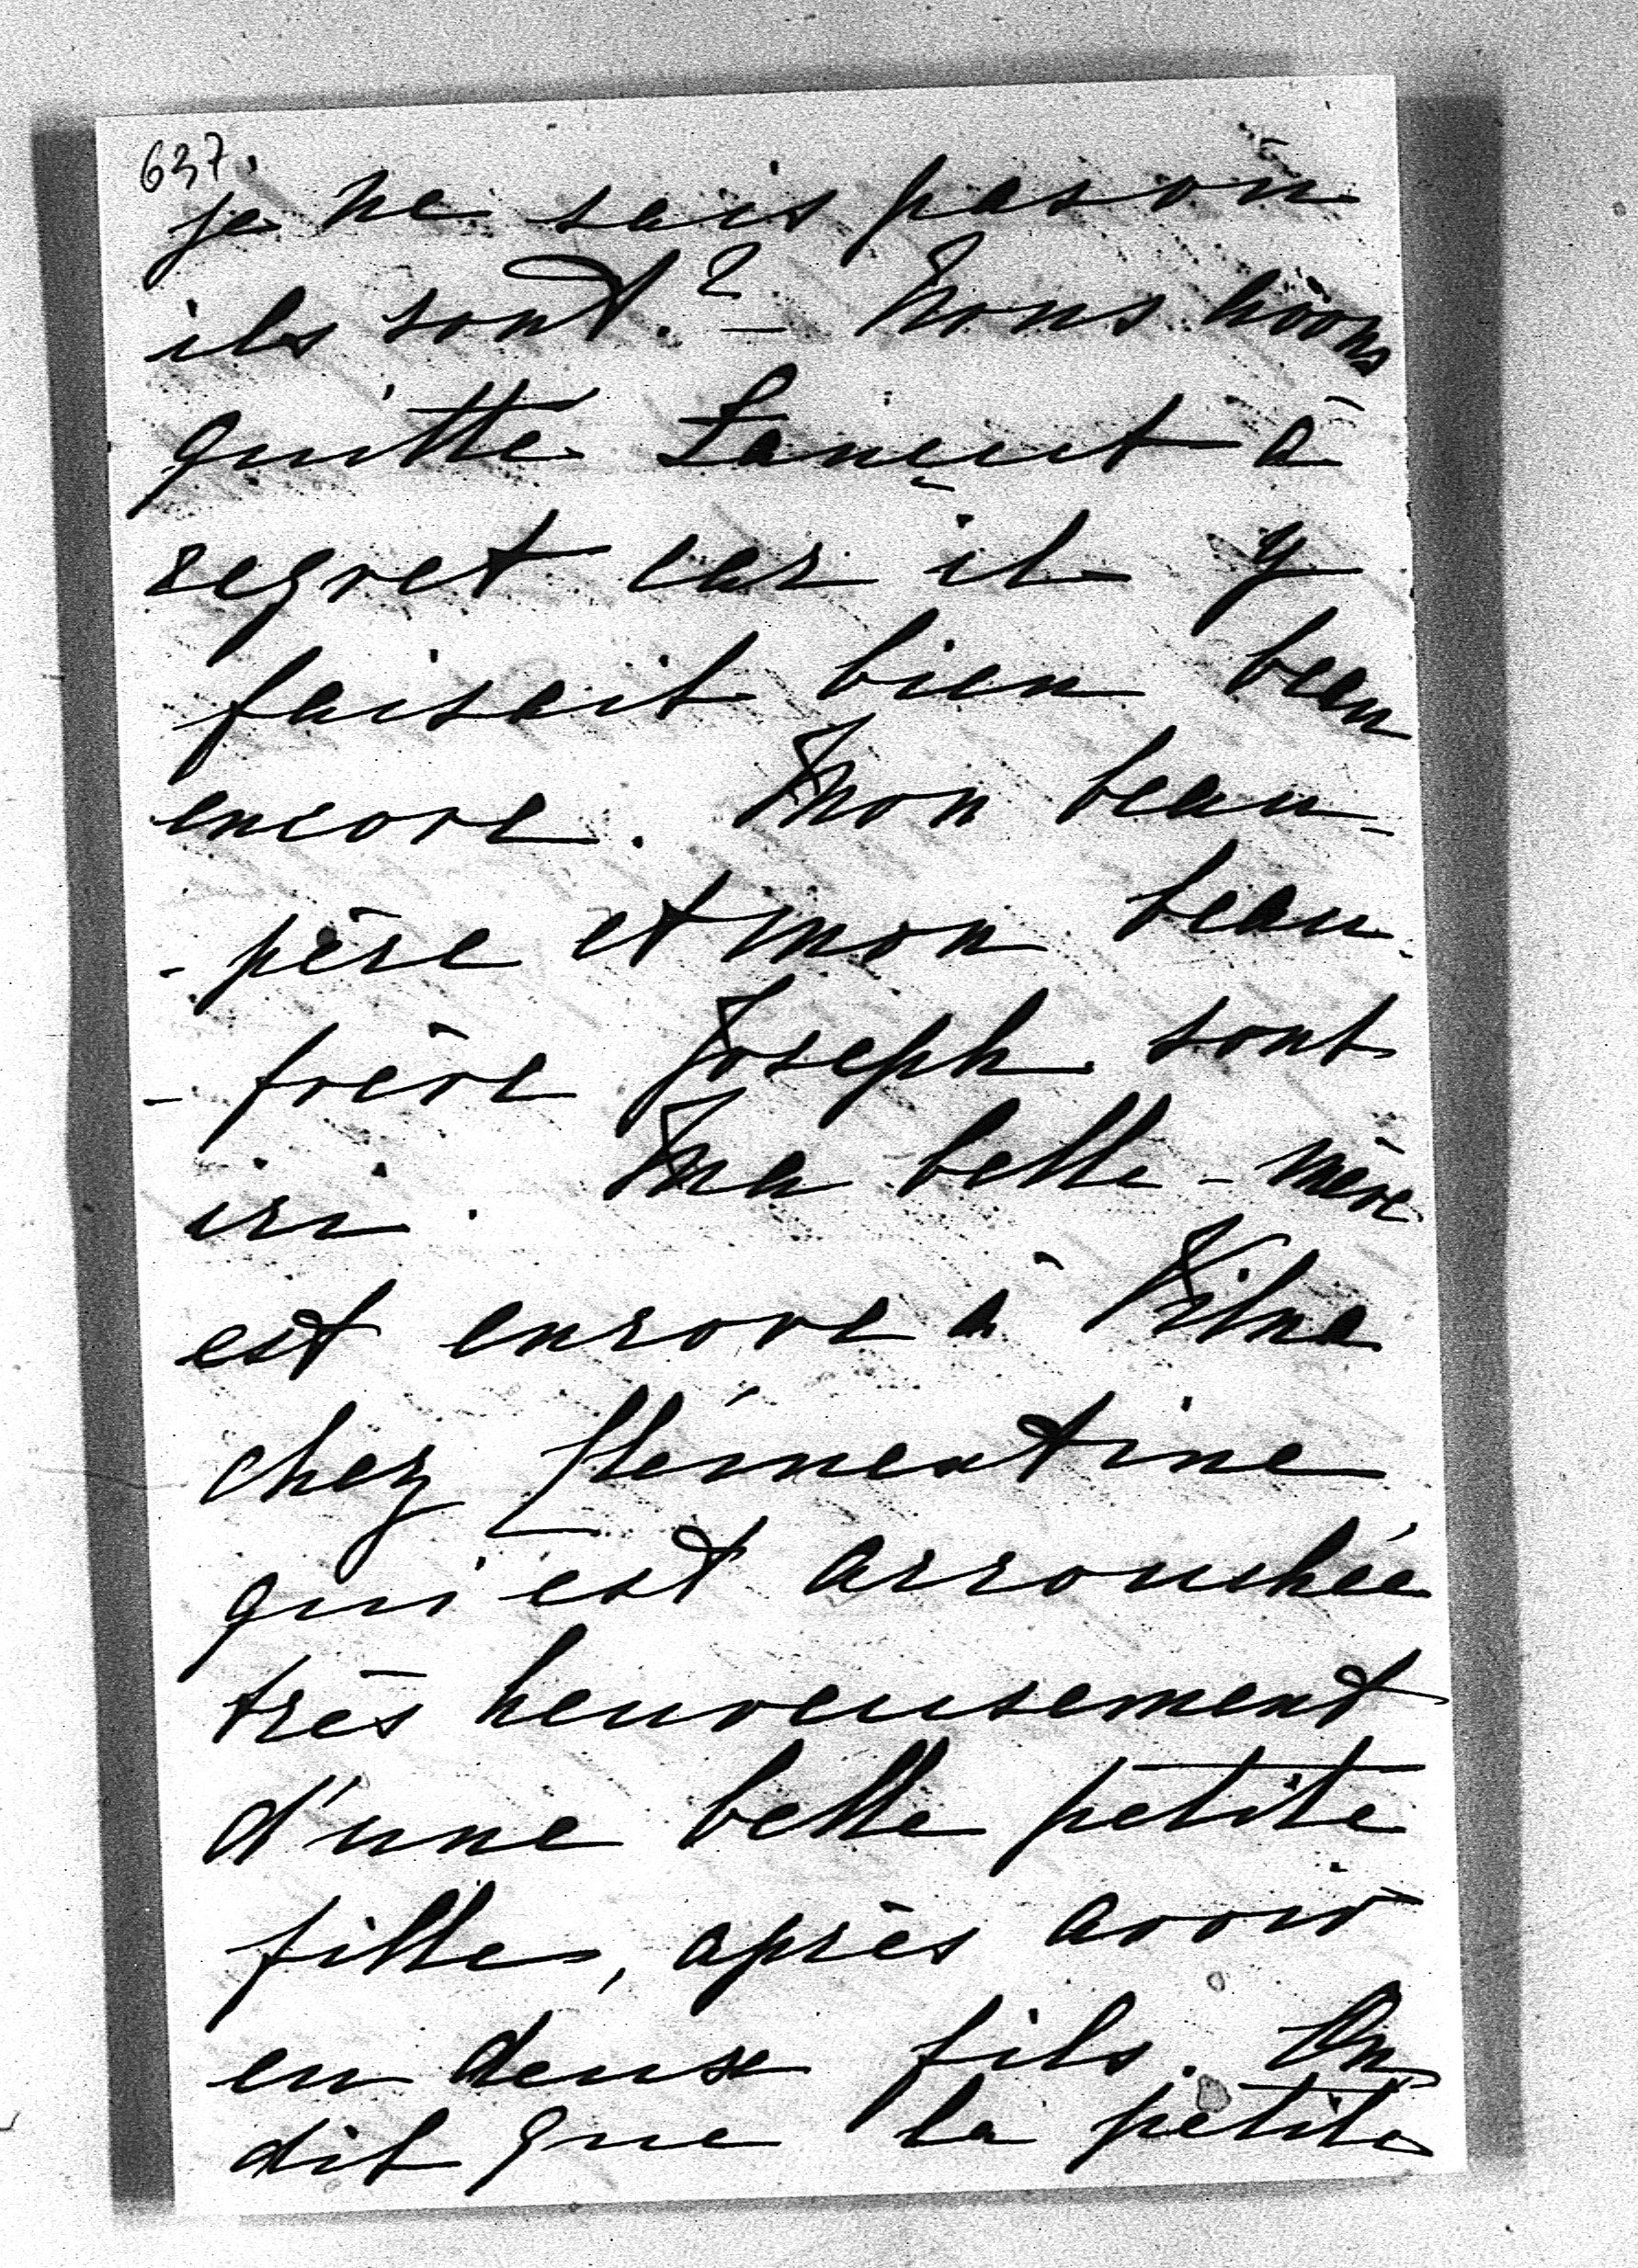 637.
je ne sais pas où
ils sont.? – Nous avons
quitté Łançut à
regret car il y
faisait bien beau
encore. Mon beau-
-père et mon beau-
-frère Joseph sont
ici. Ma belle-mère
est encore à Vilna
chez Clémentine
qui est accouchée
très heureusement
d'une belle petite
fille, après avoir
eu deux fils. On
dit que la petite